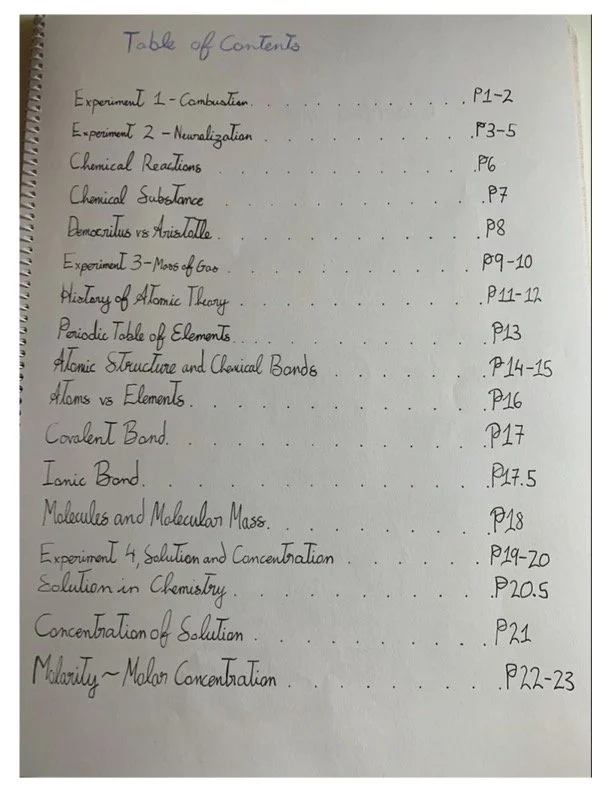 Table of Contents
Experiment 1 - Combustion. . . . . . . . . . . P1-2
Experiment 2 - Neuralization . . . . . . . . . . P3-5
Chemical Reactions . . . . . . . . . . . P6
Chemical Substance . . . . . . . . . . . P7
Democritus vs Aristotle. . . . . . . . . . . P8
Experiment 3 - Mass of Gas . . . . . . . . . . . P9-10
History of Atomic Theory . . . . . . . . . . . P11-12
Periodic Table of Elements. . . . . . . . . . . P13
Atomic Structure and Chemical Bonds . . . . . . P14-15
Atoms vs Elements. . . . . . . . . . . . P16
Covalent Bond. . . . . . . . . . . . P17
Ionic Bond. . . . . . . . . . . . . P17.5
Molecules and Molecular Mass. . . . . . . . . P18
Experiment 4, Solution and Concentration . . . . . . P19-20
Solution in Chemistry. . . . . . . . . . P20.5
Concentration of Solution . . . . . . . . . P21
Molarity ~ Molar Concentration . . . . . . . . P22-23